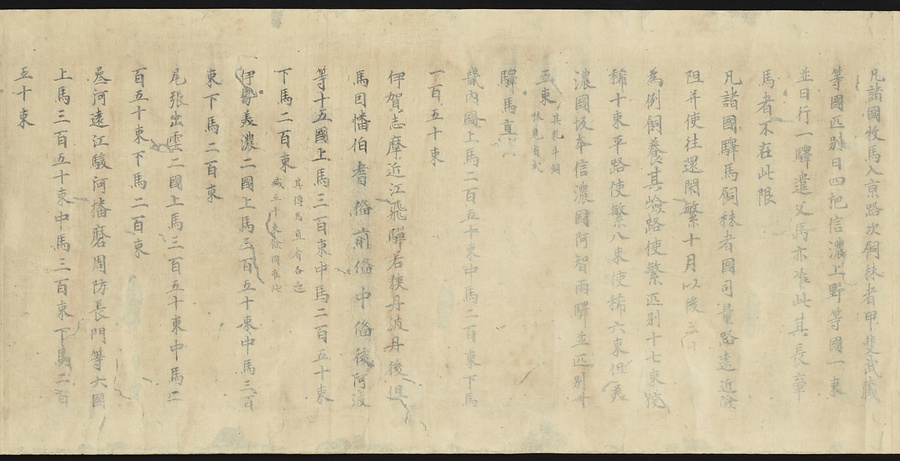 凡諸國牧馬入京路次飼秣者甲斐武藏
等國匹別日四把信濃上野等國一束
並日行一驛遣父馬亦准此其長牽
馬者不在此限
凡諸國驛馬飼秣者國司量路遠近險
阻并使往還閑繁十月以後三
為例飼養其險路使繁匹別十七束
稀十束平路使繁八束使稀六束但美
濃國坂本信濃國阿智兩驛並匹別
五束
驛馬直
畿內國上馬二百五十束中馬二百束下馬
一百五十束
伊賀志摩近江飛驒若狹丹波丹後但
馬因幡伯耆備前備中備後阿波
等十五國上馬三百束中馬二百五十束
下馬二百束 其傳馬直有各
減五十束餘國准此
伊勢美濃二國上馬三百五十束中馬三百
束下馬二百束
尾張出雲二國上馬三百五十束中馬二
百五十束下馬二百束
參河遠江駿河播磨周防長門等六國
上馬三百五十束中馬三百束下馬二百
五十束